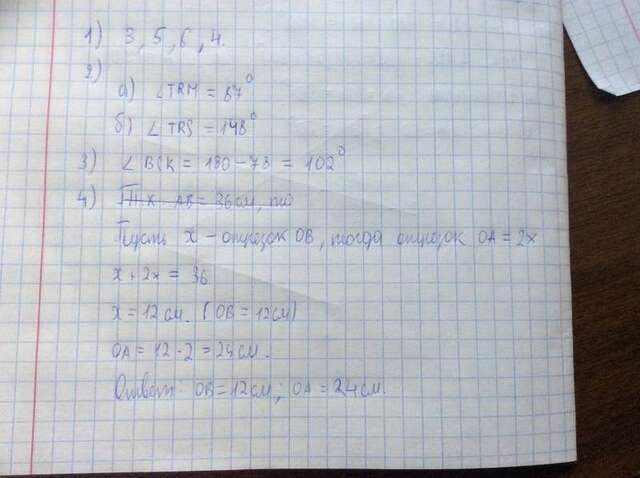 1) 3, 5, 6, 4.
2)
а) ∠TRM = 87°
б) ∠TRS = 148°
3) ∠BCK = 180 - 78 = 102°
4) AB = 36см, то
Пусть x - отрезок OB, тогда отрезок OA = 2x
x + 2x = 36
x = 12 см. (OB = 12см)
OA = 12 · 2 = 24 см.
Ответ: OB = 12см; OA = 24 см.